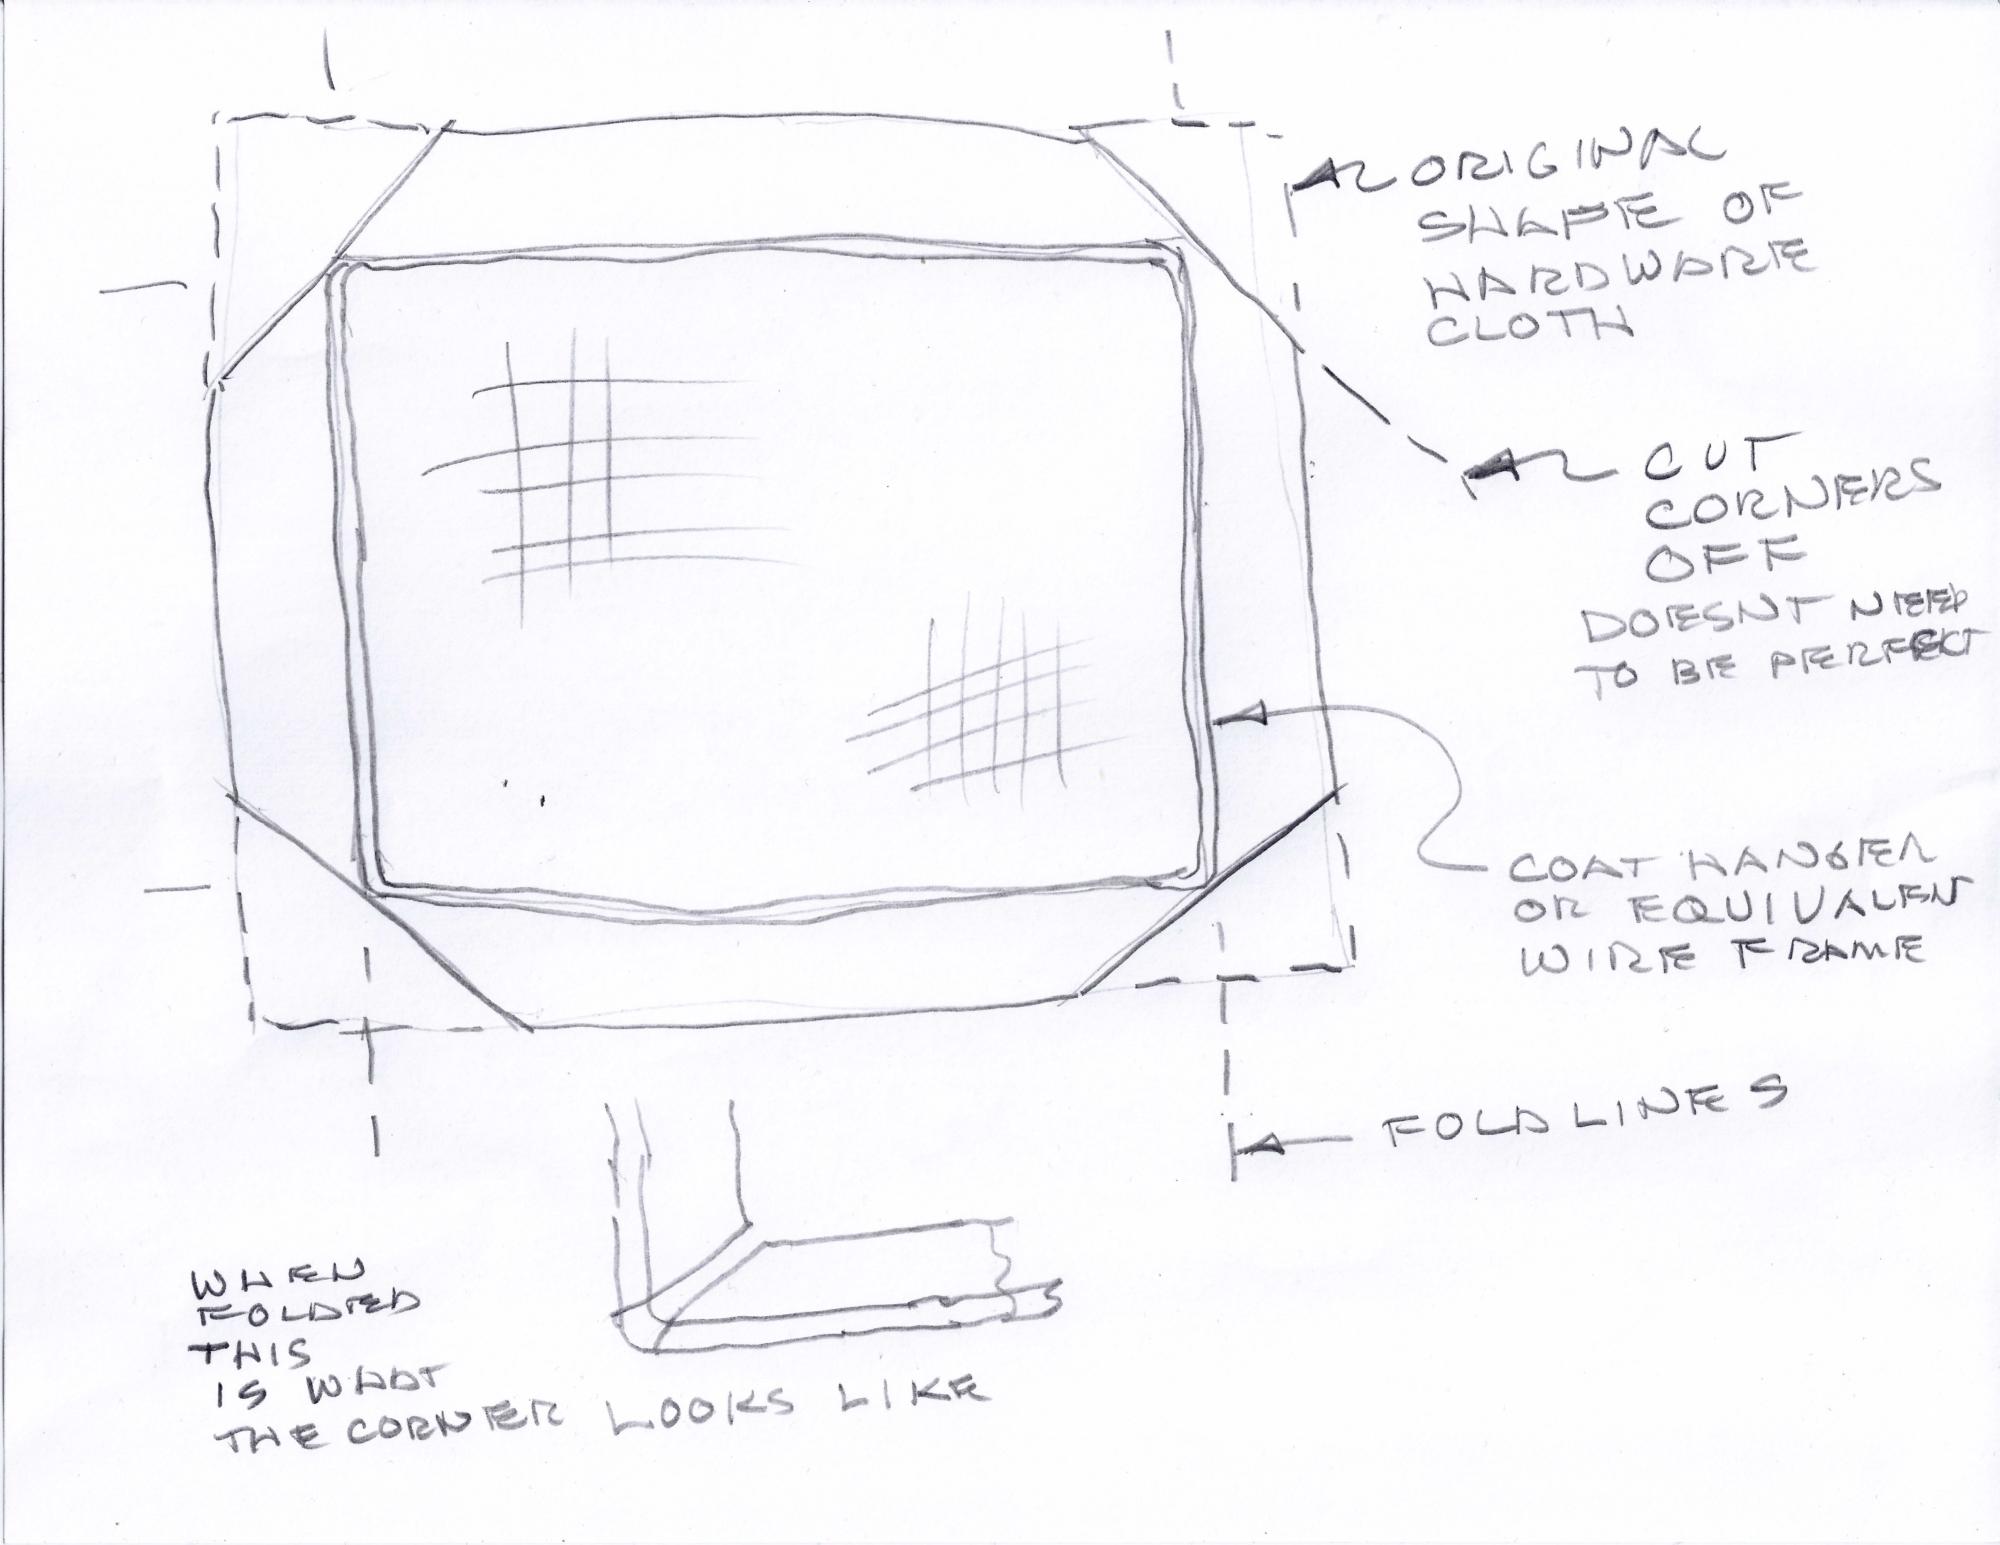 ORIGINAL
SHAPE OF
HARDWARE
CLOTH
CUT
CORNERS
OFF
DOESNT NEED
TO BE PERFECT
COAT HANGER
OR EQUIVALEN
WIRE FRAME
FOLD LINES
WHEN
FOLDED
THIS
IS WHAT
THE CORNER LOOKS LIKE